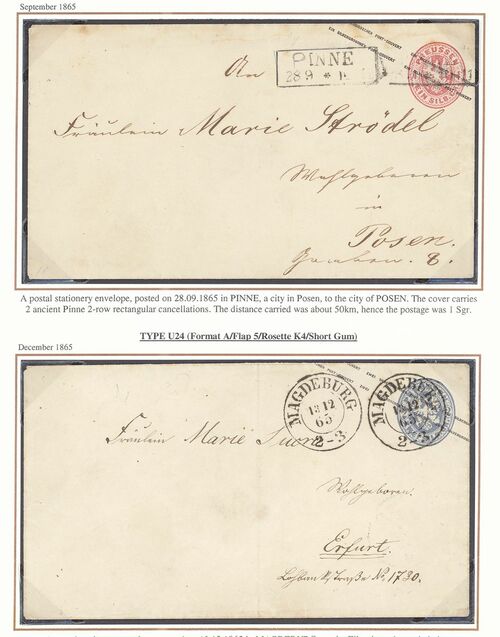 September 1865
PINNE
28 9 * 1
PREUSSEN
EIN SILB
An
Fräulein Marie Strödel
Wohlgeboren
in
Posen.
Graben. 8.
A postal stationery envelope, posted on 28.09.1865 in PINNE, a city in Posen, to the city of POSEN. The cover carries
2 ancient Pinne 2-row rectangular cancellations. The distance carried was about 50km, hence the postage was 1 Sgr.
TYPE U24 (Format A/Flap 5/Rosette K4/Short Gum)
December 1865
MAGDEBURG
13 12
65
2-3
MAGDEBURG
13 12
65
2-3
Fräulein Marie
Wohlgeboren.
Erfurt.
No. 1730.